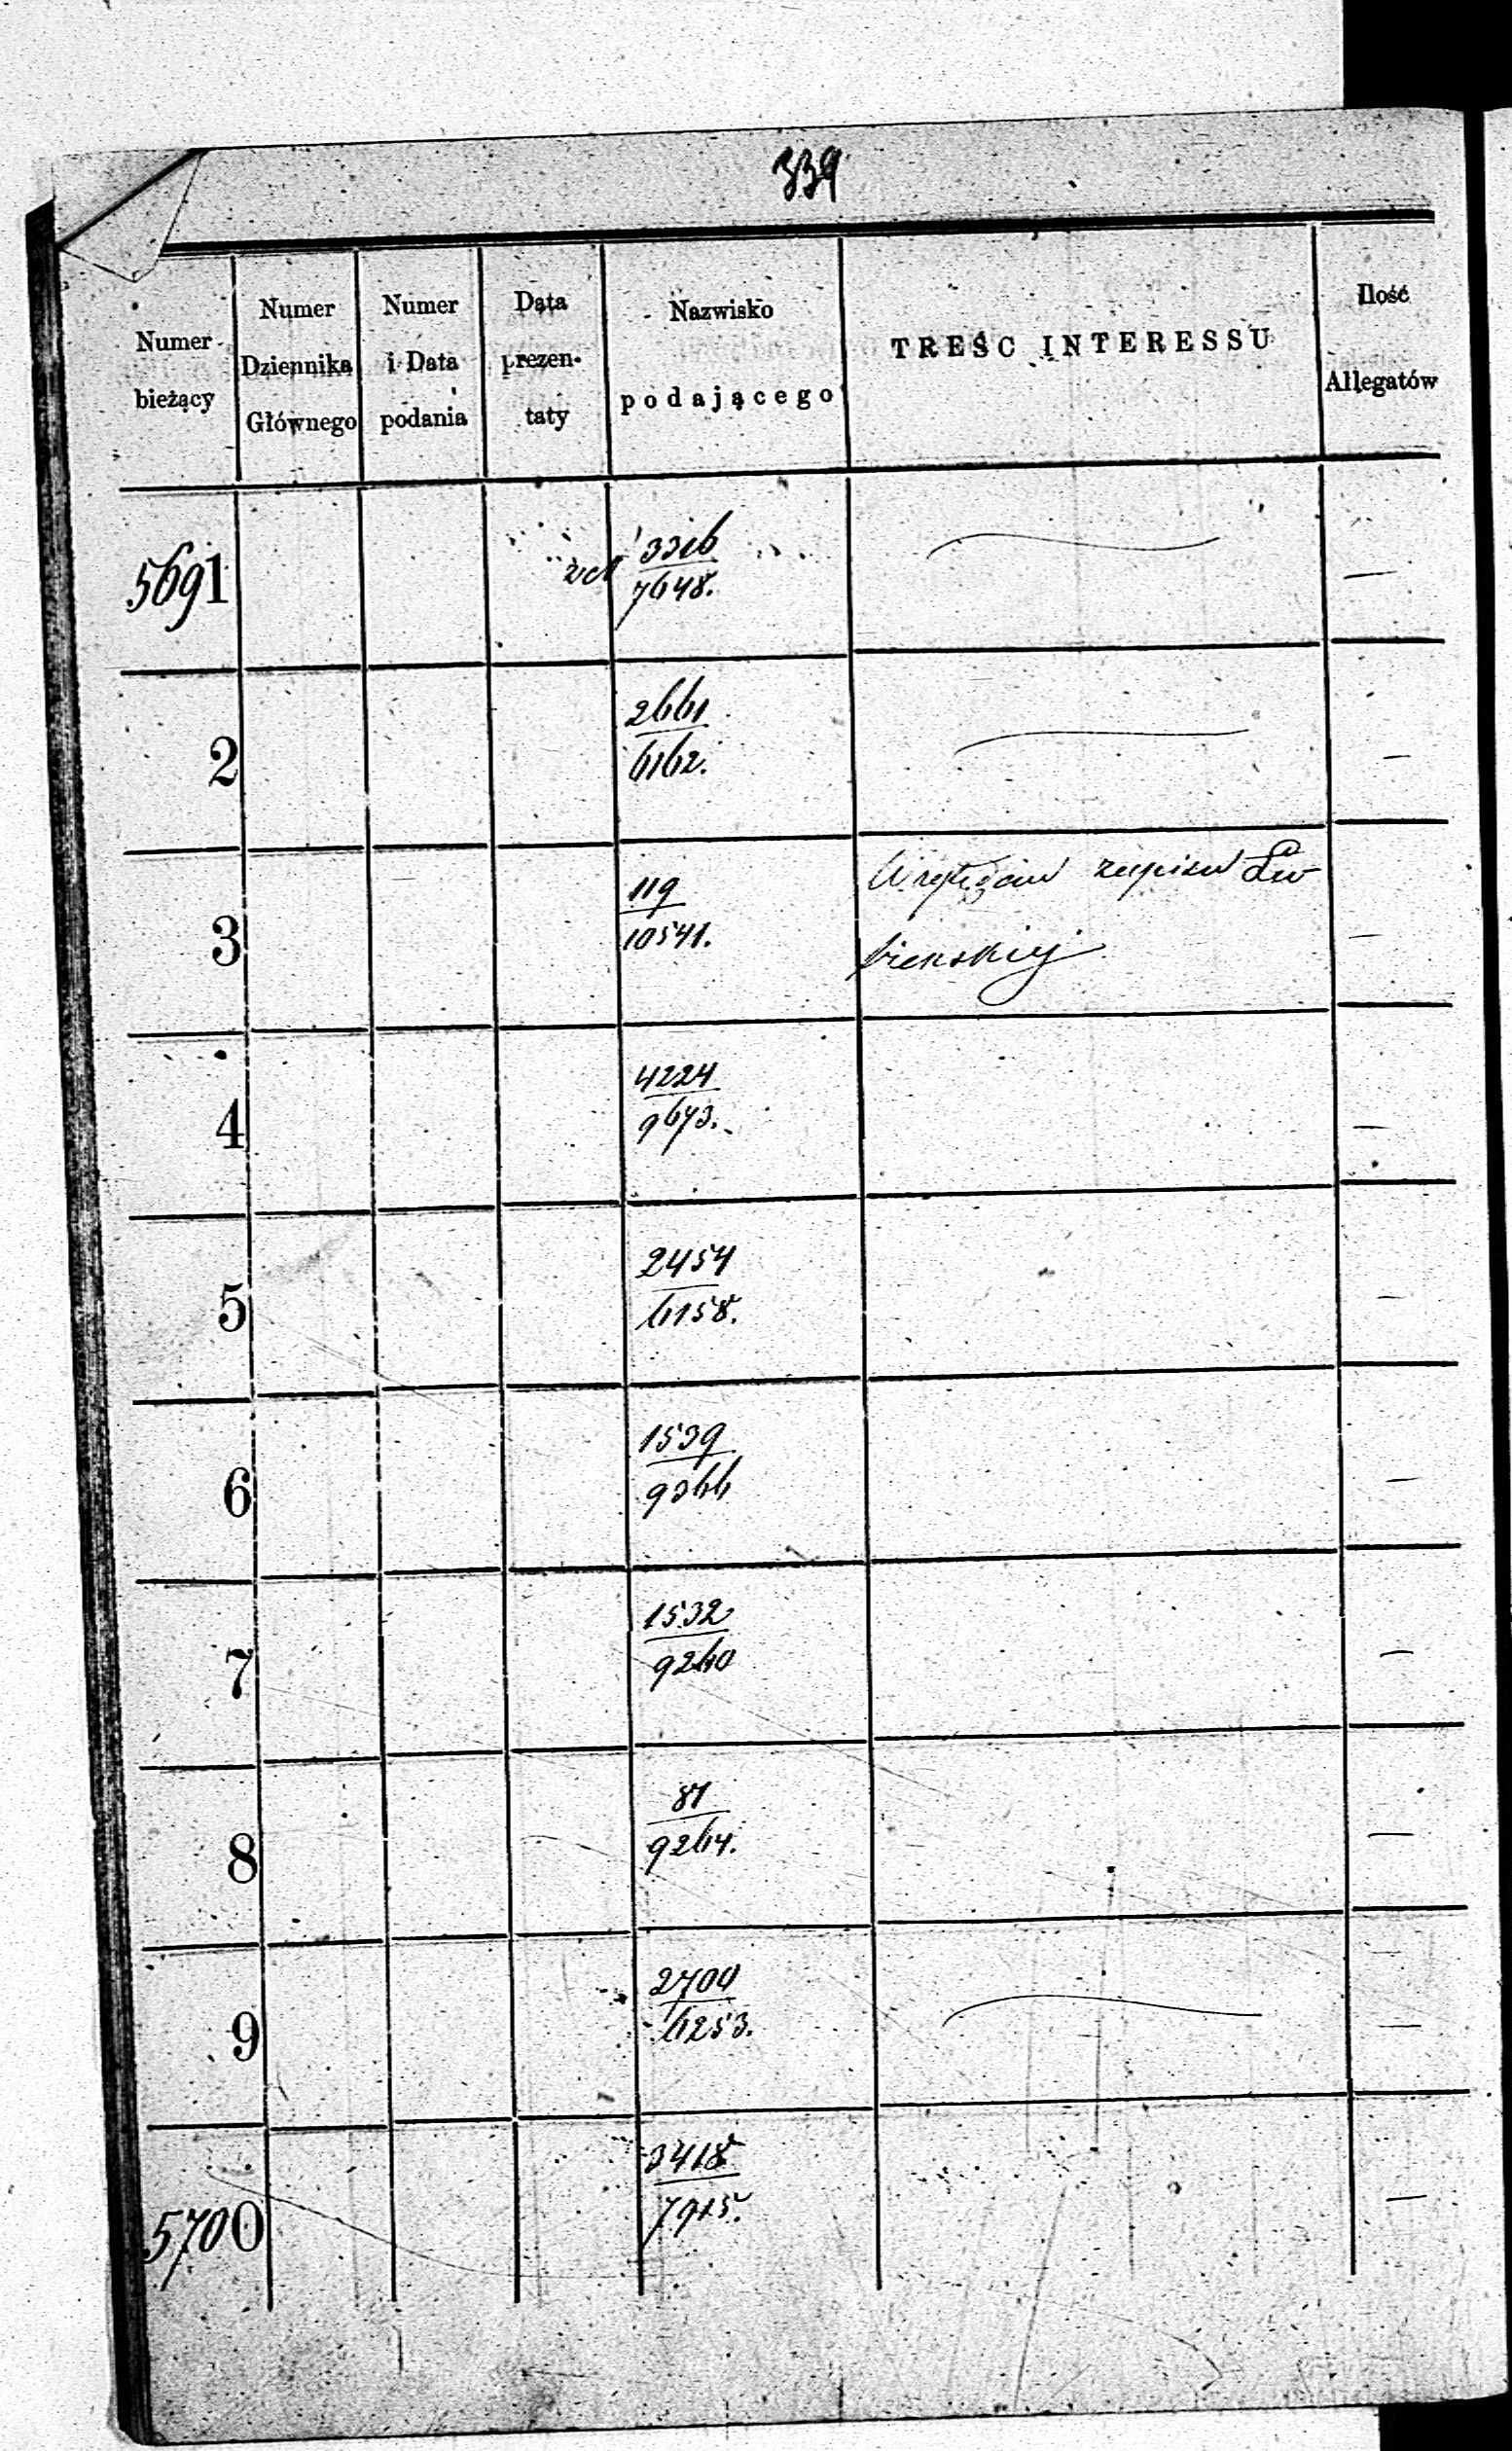 339
Numer bieżący
Numer Dziennika Głównego
Numer i Data podania
Data prezen-taty
Nazwisko podającego
TREŚC INTERESSU
Ilość Allegatów
5691
3316
7648.
—
2
2661
6162.
—
3
119
10541.
zapisu
—
4
4224
9673.
—
5
2454
6158.
—
6
1539
9366
—
7
1532
9260
—
8
81
9264.
—
9
2700
6253.
—
5700
3418
7915.
—